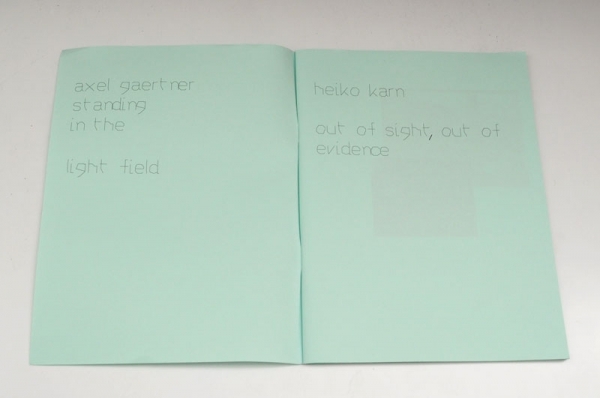 axel gaertner
standing
in the
light field
heiko karn
out of sight, out of
evidence